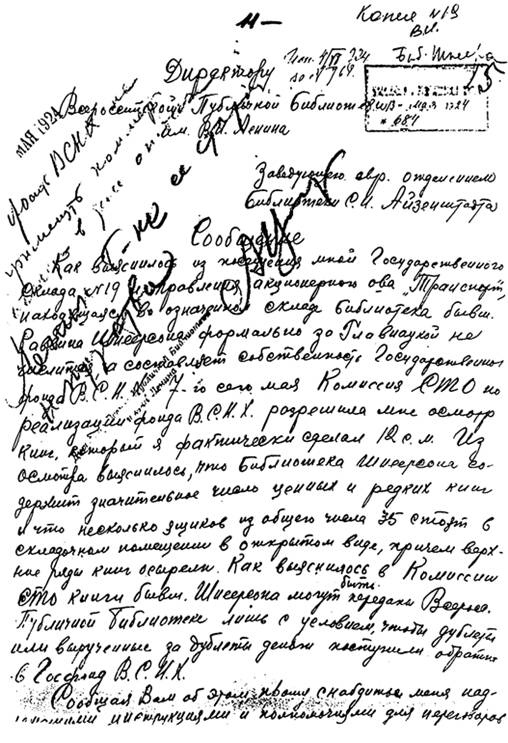 Копия №19
Директору
Всероссийской Публичной Библиотеки
им. В.И. Ленина
МАЙ 1924
№ 684
Заведующего евр. отделением
Библиотеки С.И. Айзенштата
Сообщение
Как выяснилось из посещения мной Государственного
Склада №19 Управления акционерного о-ва "Транспорт",
находящаяся в означенном склад библиотека бывш.
Раввина Шнеерсона формально за Главнаукой не
числится, а составляет собственность Государственного
фонда В.С.Н.Х. 7-го сего мая Комиссия СТО по
реализации фонда В.С.Н.Х. разрешила мне осмотр
книг, который я фактически сделал 12 с.м. Из
осмотра выяснилось, что библиотека Шнеерсона со-
держит значительное число ценных и редких книг
и что несколько ящиков из общего числа 35 стоят в
складочном помещении в открытом виде, причем верх-
ние ряды книг осырели. Как выяснилось в Комиссии
СТО книги бывш. Шнеерсона могут быть переданы Всеросс.
Публичной Библиотеке лишь с условием, чтобы дублеты
или вырученные за дублеты деньги поступили обратно
в Госфонд В.С.Н.Х.
Сообщая Вам об этом прошу снабдить меня над-
лежащими инструкциями и полномочиями для переговоров